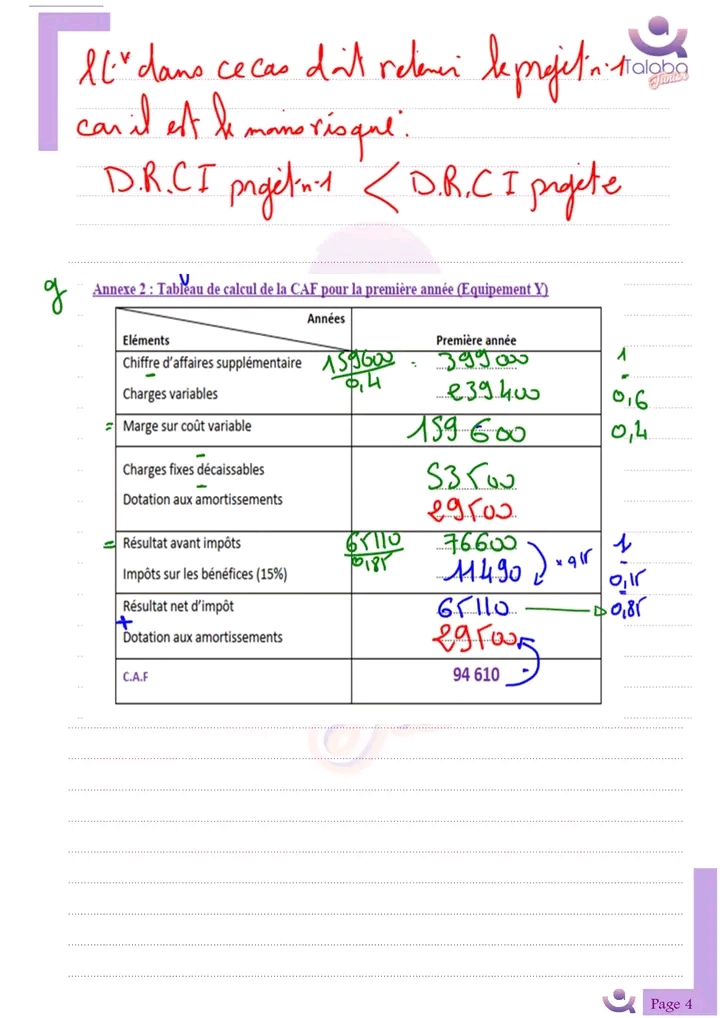 dans ce cas doit retenir le projet n-1
Talaba
Junior
car il est le moins risqué.
D.R.C I projet-n-1 < D.R.C I projet 2
g
Annexe 2 : Tableau de calcul de la CAF pour la première année (Equipement Y)
Années
Eléments Première année
Chiffre d'affaires supplémentaire 159600 / 0,4 = 399 000 1
Charges variables - 239 400 0,6
= Marge sur coût variable 159 600 0,4
Charges fixes décaissables 53500
Dotation aux amortissements 29500
= Résultat avant impôts 65110 / 0,85 76600 1
Impôts sur les bénéfices (15%) 11490 × 0,15 0,15
Résultat net d'impôt 65110 0,85
+
Dotation aux amortissements 29500
C.A.F 94 610
Page 4